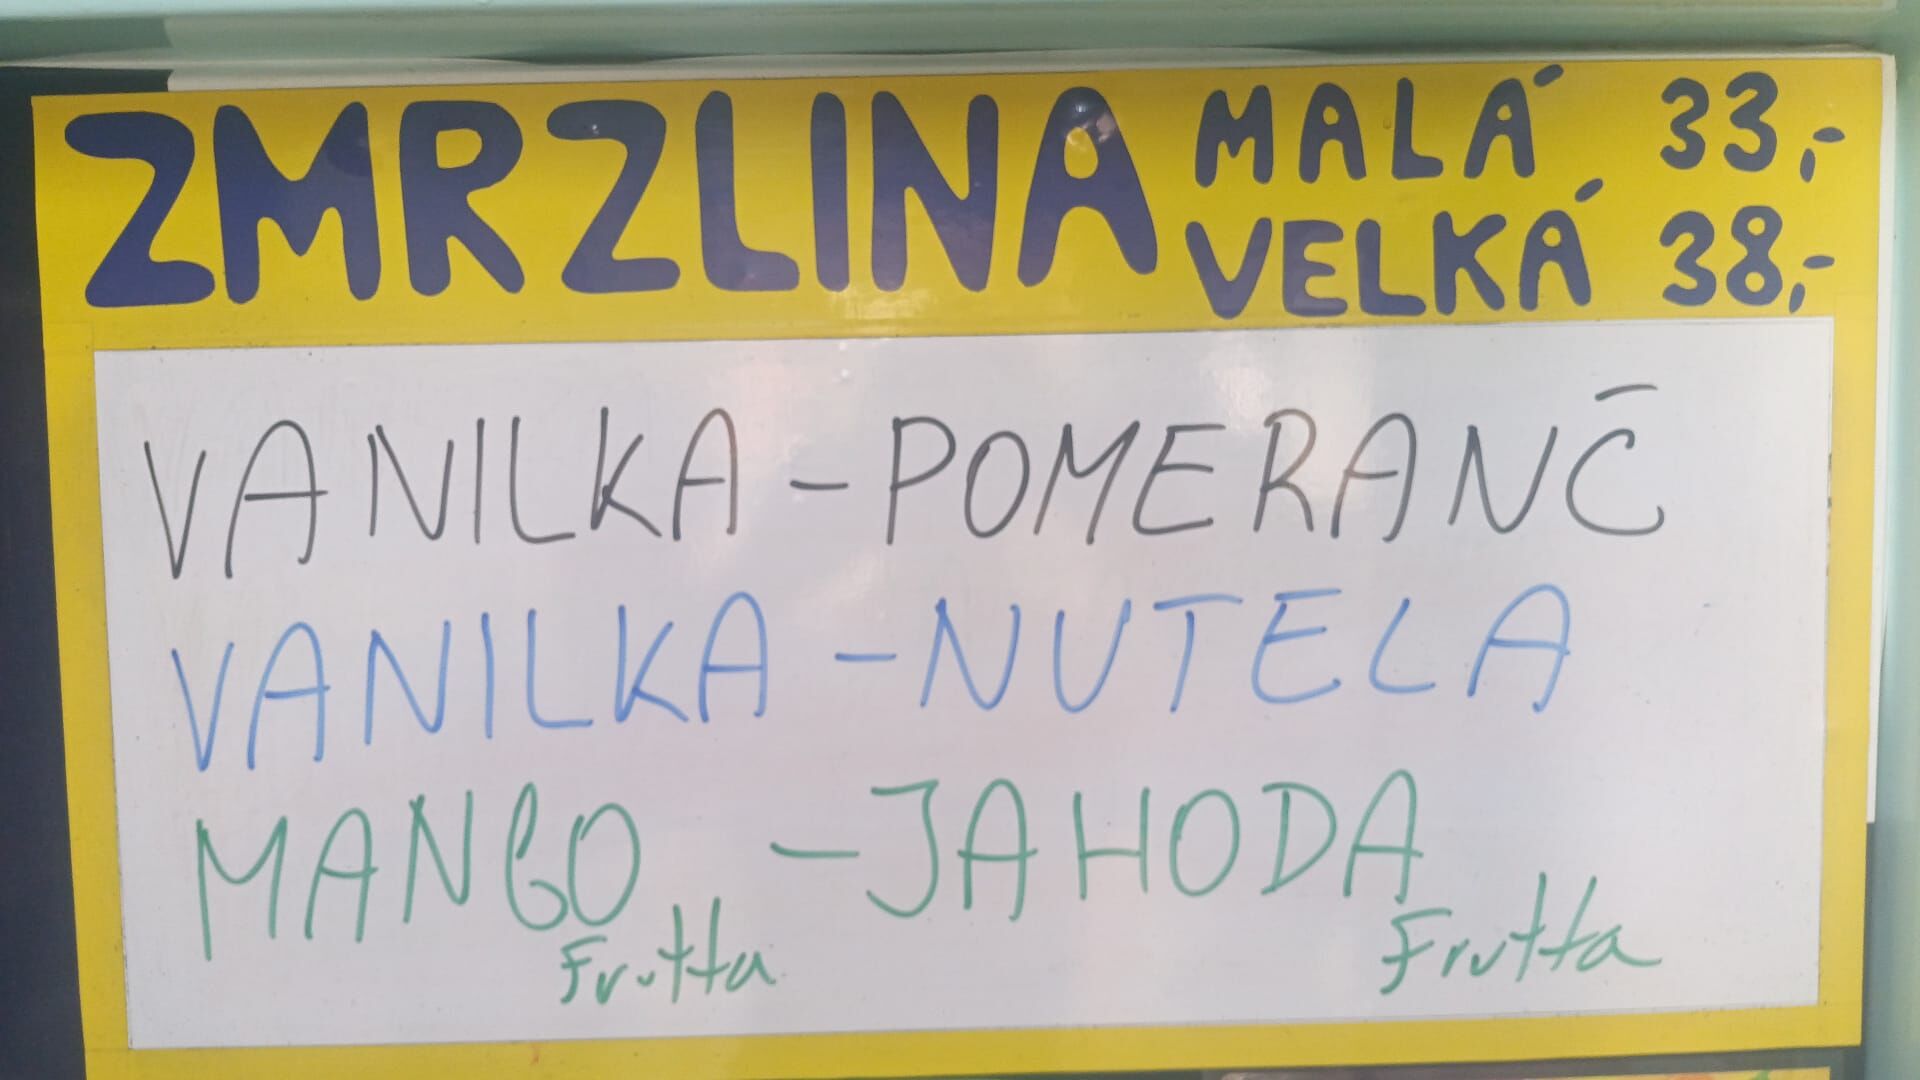 ZMRZLINA MALÁ 33,-
VELKÁ 38,-
VANILKA - POMERANČ
VANILKA - NUTELA
MANGO - JAHODA
Frutta Frutta